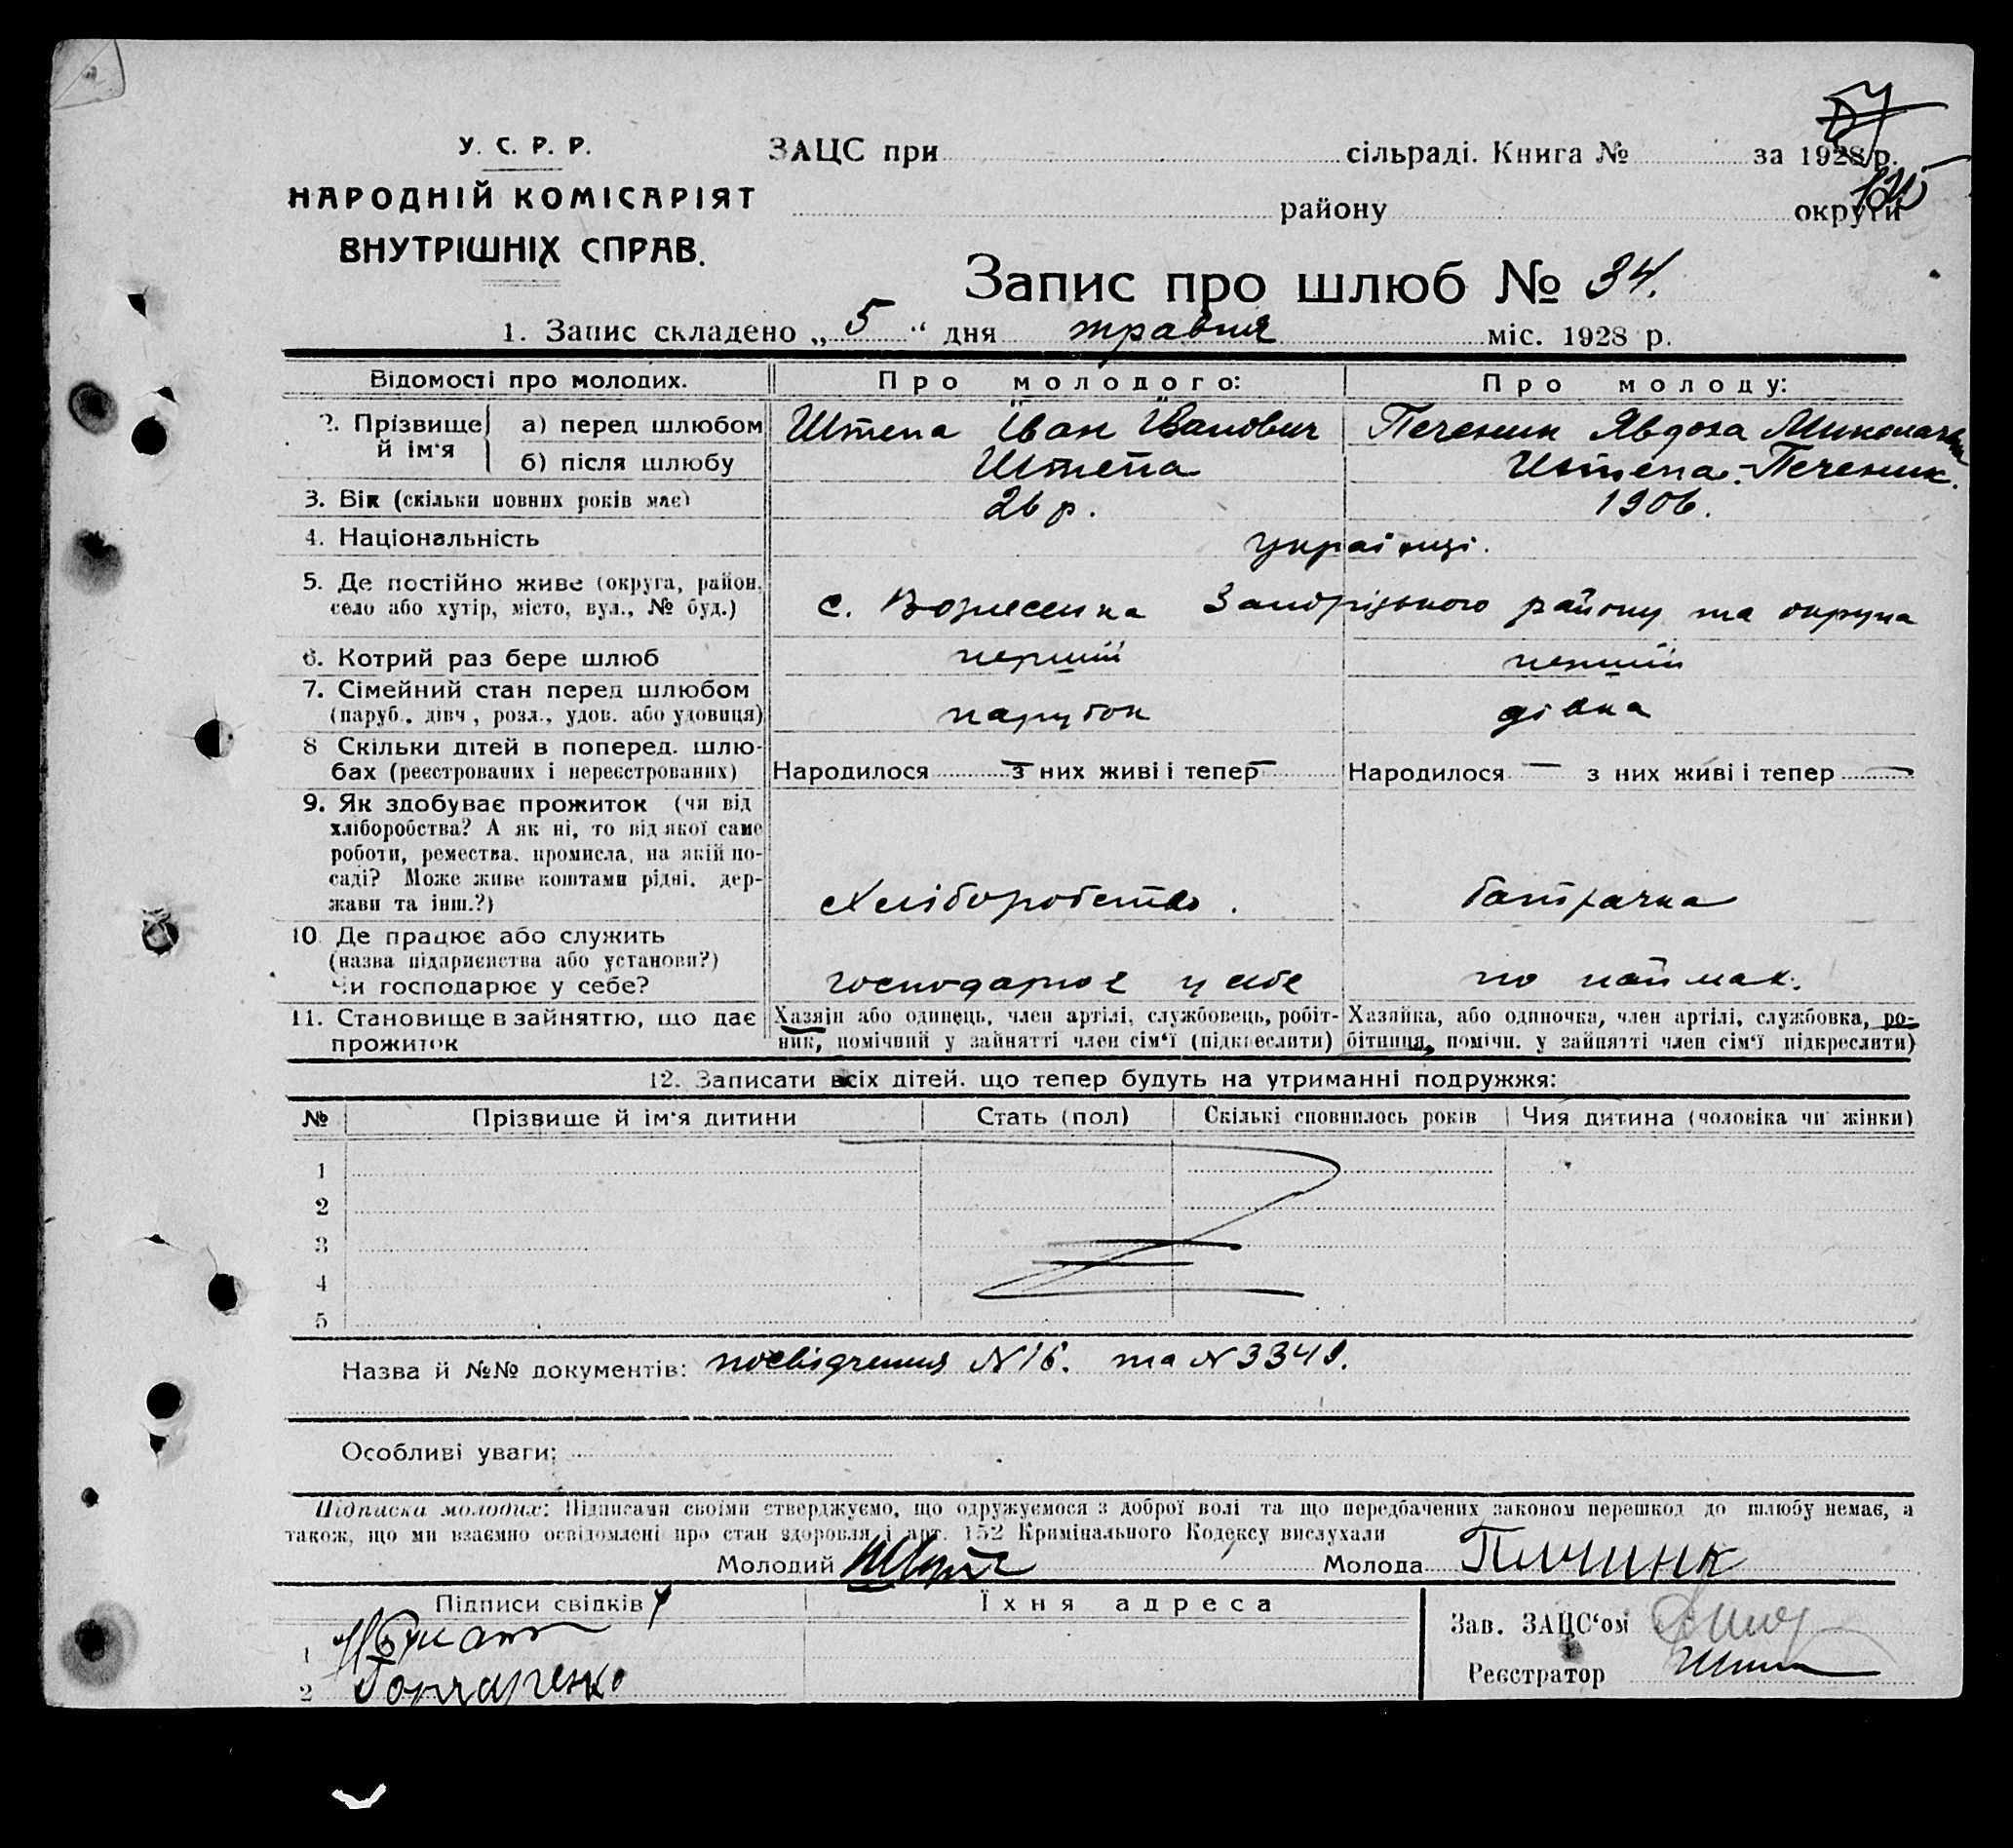 У. С. Р. Р.
НАРОДНІЙ КОМІСАРІЯТ
ВНУТРІШНІХ СПРАВ.
ЗАЦС при сільраді. Книга № за 1928 р.
району округи
Запис про шлюб № 34.
1. Запис складено „ 5 “ дня травня міс. 1928 р.
Відомості про молодих. Про молодого: Про молоду:
2. Прізвище й ім'я а) перед шлюбом Штепа Іван Іванович Печеник Явдоха
б) після шлюбу Штепа Штепа-Печеник.
3. Вік (скільки повних років має) 26 р. 1906.
4. Національність українці.
5. Де постійно живе (округа, район, село або хутір, місто, вул., № буд.) с. Вознесенка Запорізького району та округа
6. Котрий раз бере шлюб перший перший
7. Сімейний стан перед шлюбом (паруб., дівч., розл., удов. або удовиця) парубок дівка
8 Скільки дітей в поперед. шлю-
бах (реєстрованих і нереєстрованих) Народилося — з них живі і тепер — Народилося — з них живі і тепер —
9. Як здобуває прожиток (чи від
хліборобства? А як ні, то від якої саме
роботи, ремества, промисла, на якій по-
саді? Може живе коштами рідні, дер-
жави та інш.?) Хліборобство. батрачка
10. Де працює або служить
(назва підприємства або установи?)
Чи господарює у себе? господарює у себе по наймах.
11. Становище в зайняттю, що дає прожиток
Хазяїн або одинець, член артілі, службовець, робіт-
ник, помічний у зайнятті член сім'ї (підкреслити)
Хазяйка, або одиночка, член артілі, службовка, ро-
бітниця, помічн. у зайнятті член сім'ї підкреслити)
12. Записати всіх дітей, що тепер будуть на утриманні подружжя:
№ Прізвище й ім'я дитини Стать (пол) Скількі сповнилось років Чия дитина (чоловіка чи жінки)
1
2
3
4
5
Назва й №№ документів: посвідчення N 16. та N 3349.
Особливі уваги:
Підписка молодих: Підписами своїми стверджуємо, що одружуємося з доброї волі та що передбачених законом перешкод до шлюбу немає, а
також, що ми взаємно освідомлені про стан здоровля і арт. 152 Кримінального Кодексу вислухали
Молодий Молода Пичинк
Підписи свідків Їхня адреса
1
2 Гончаренко
Зав. ЗАЦС'ом
Реєстратор